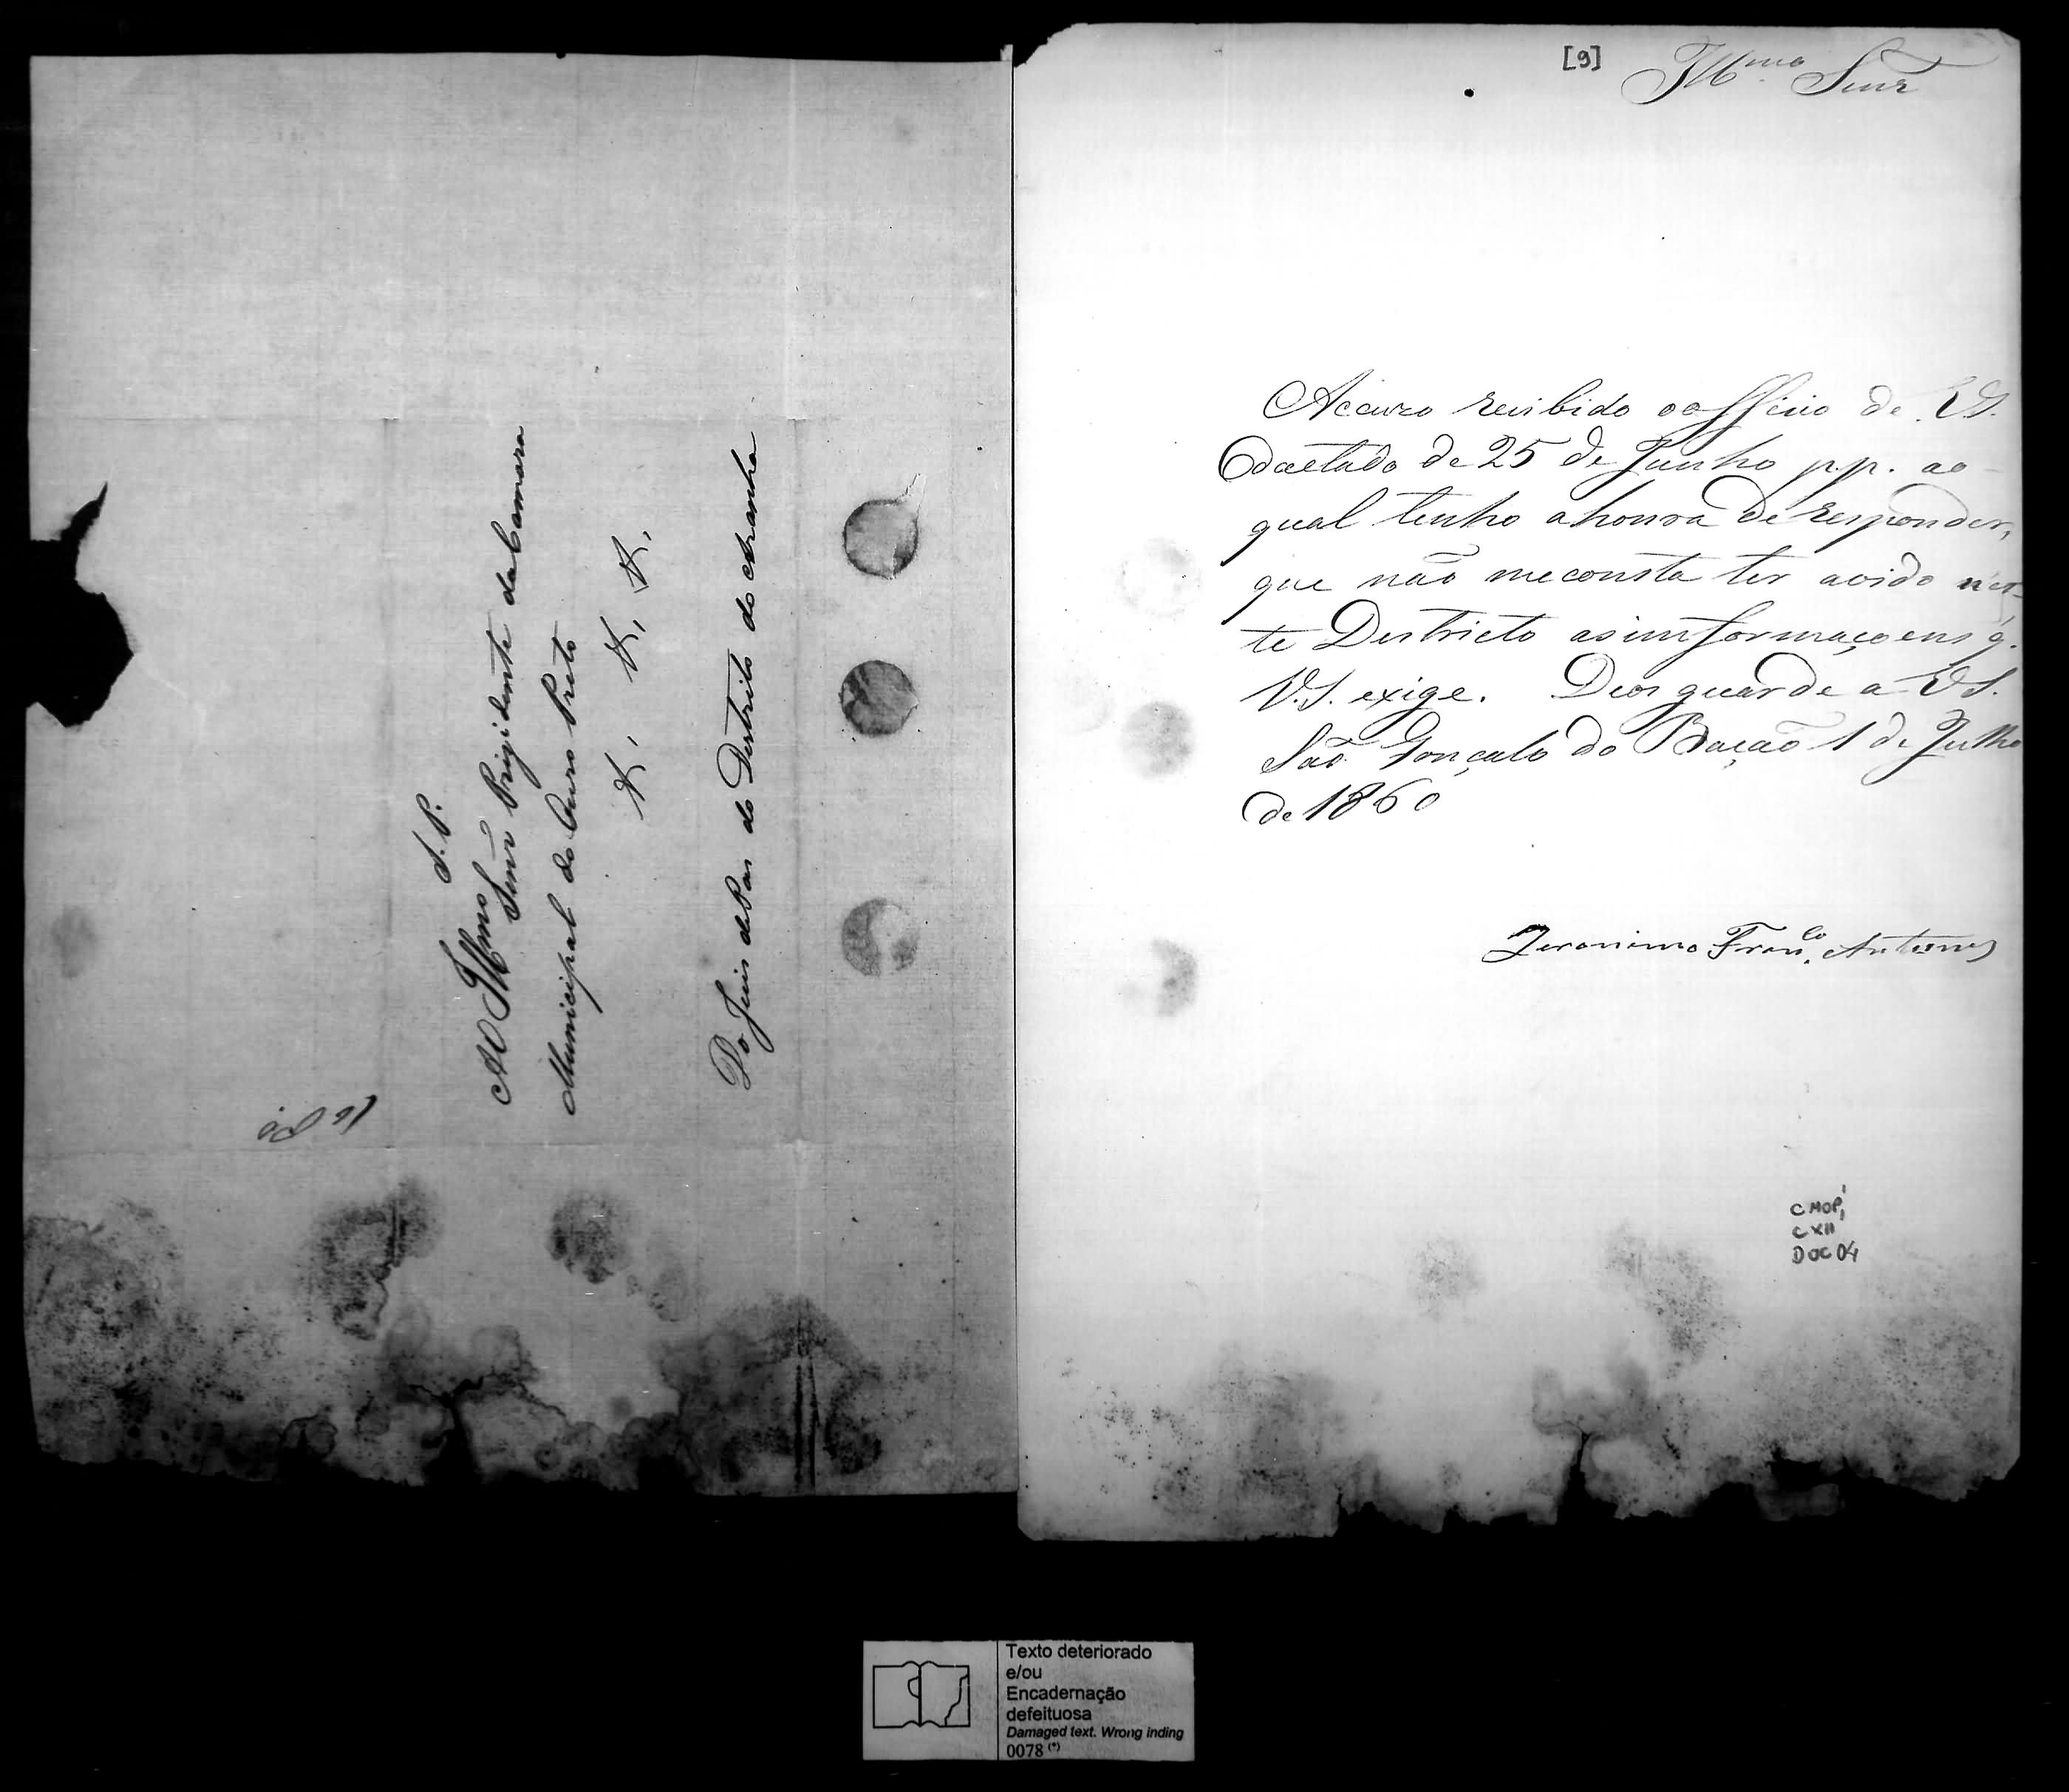 S. P.
AO Illmo Senr̃ Prezidente da Camara
Municipal do Ouro Preto
&, &, &,
Do Juis de Pas do Destrito do
[9]
Illmo Senr
Accuzo recibido o officio de V.S.
daetado de 25 de Junho p.p. ao
qual tenho a honra de responder,
que não me consta ter avido nes-
te Destricto as imformaçoens q.
V.S. exige. Deos guarde a V.S.
São Gonçalo do Bação 1 de Julho
de 1860
Jeronimo Fran.co Antunes
CMOP,
CXII
DOC 04
Texto deteriorado
e/ou
Encadernação
defeituosa
Damaged text. Wrong inding
0078 (*)